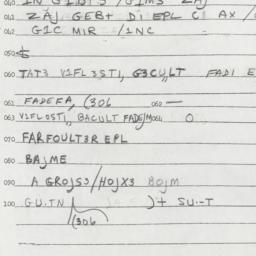 040 IN GIDIS / GIMS ZAJ
041 ZAJ GEB+ DI EPL CI AX /
042 GIC MIR / INC
050
060 TAT3 VIFL3STI, G3CULT FADI E
061 FADEFA, (306 062 —
063 VIFLOSTI,, BACULT FADEJM 064 O
070 FARFOULT3R EPL
080 BAJME
090 A GROJS3/HOJX3 BOJM
100 GU.TN )+ SU.-T
(306